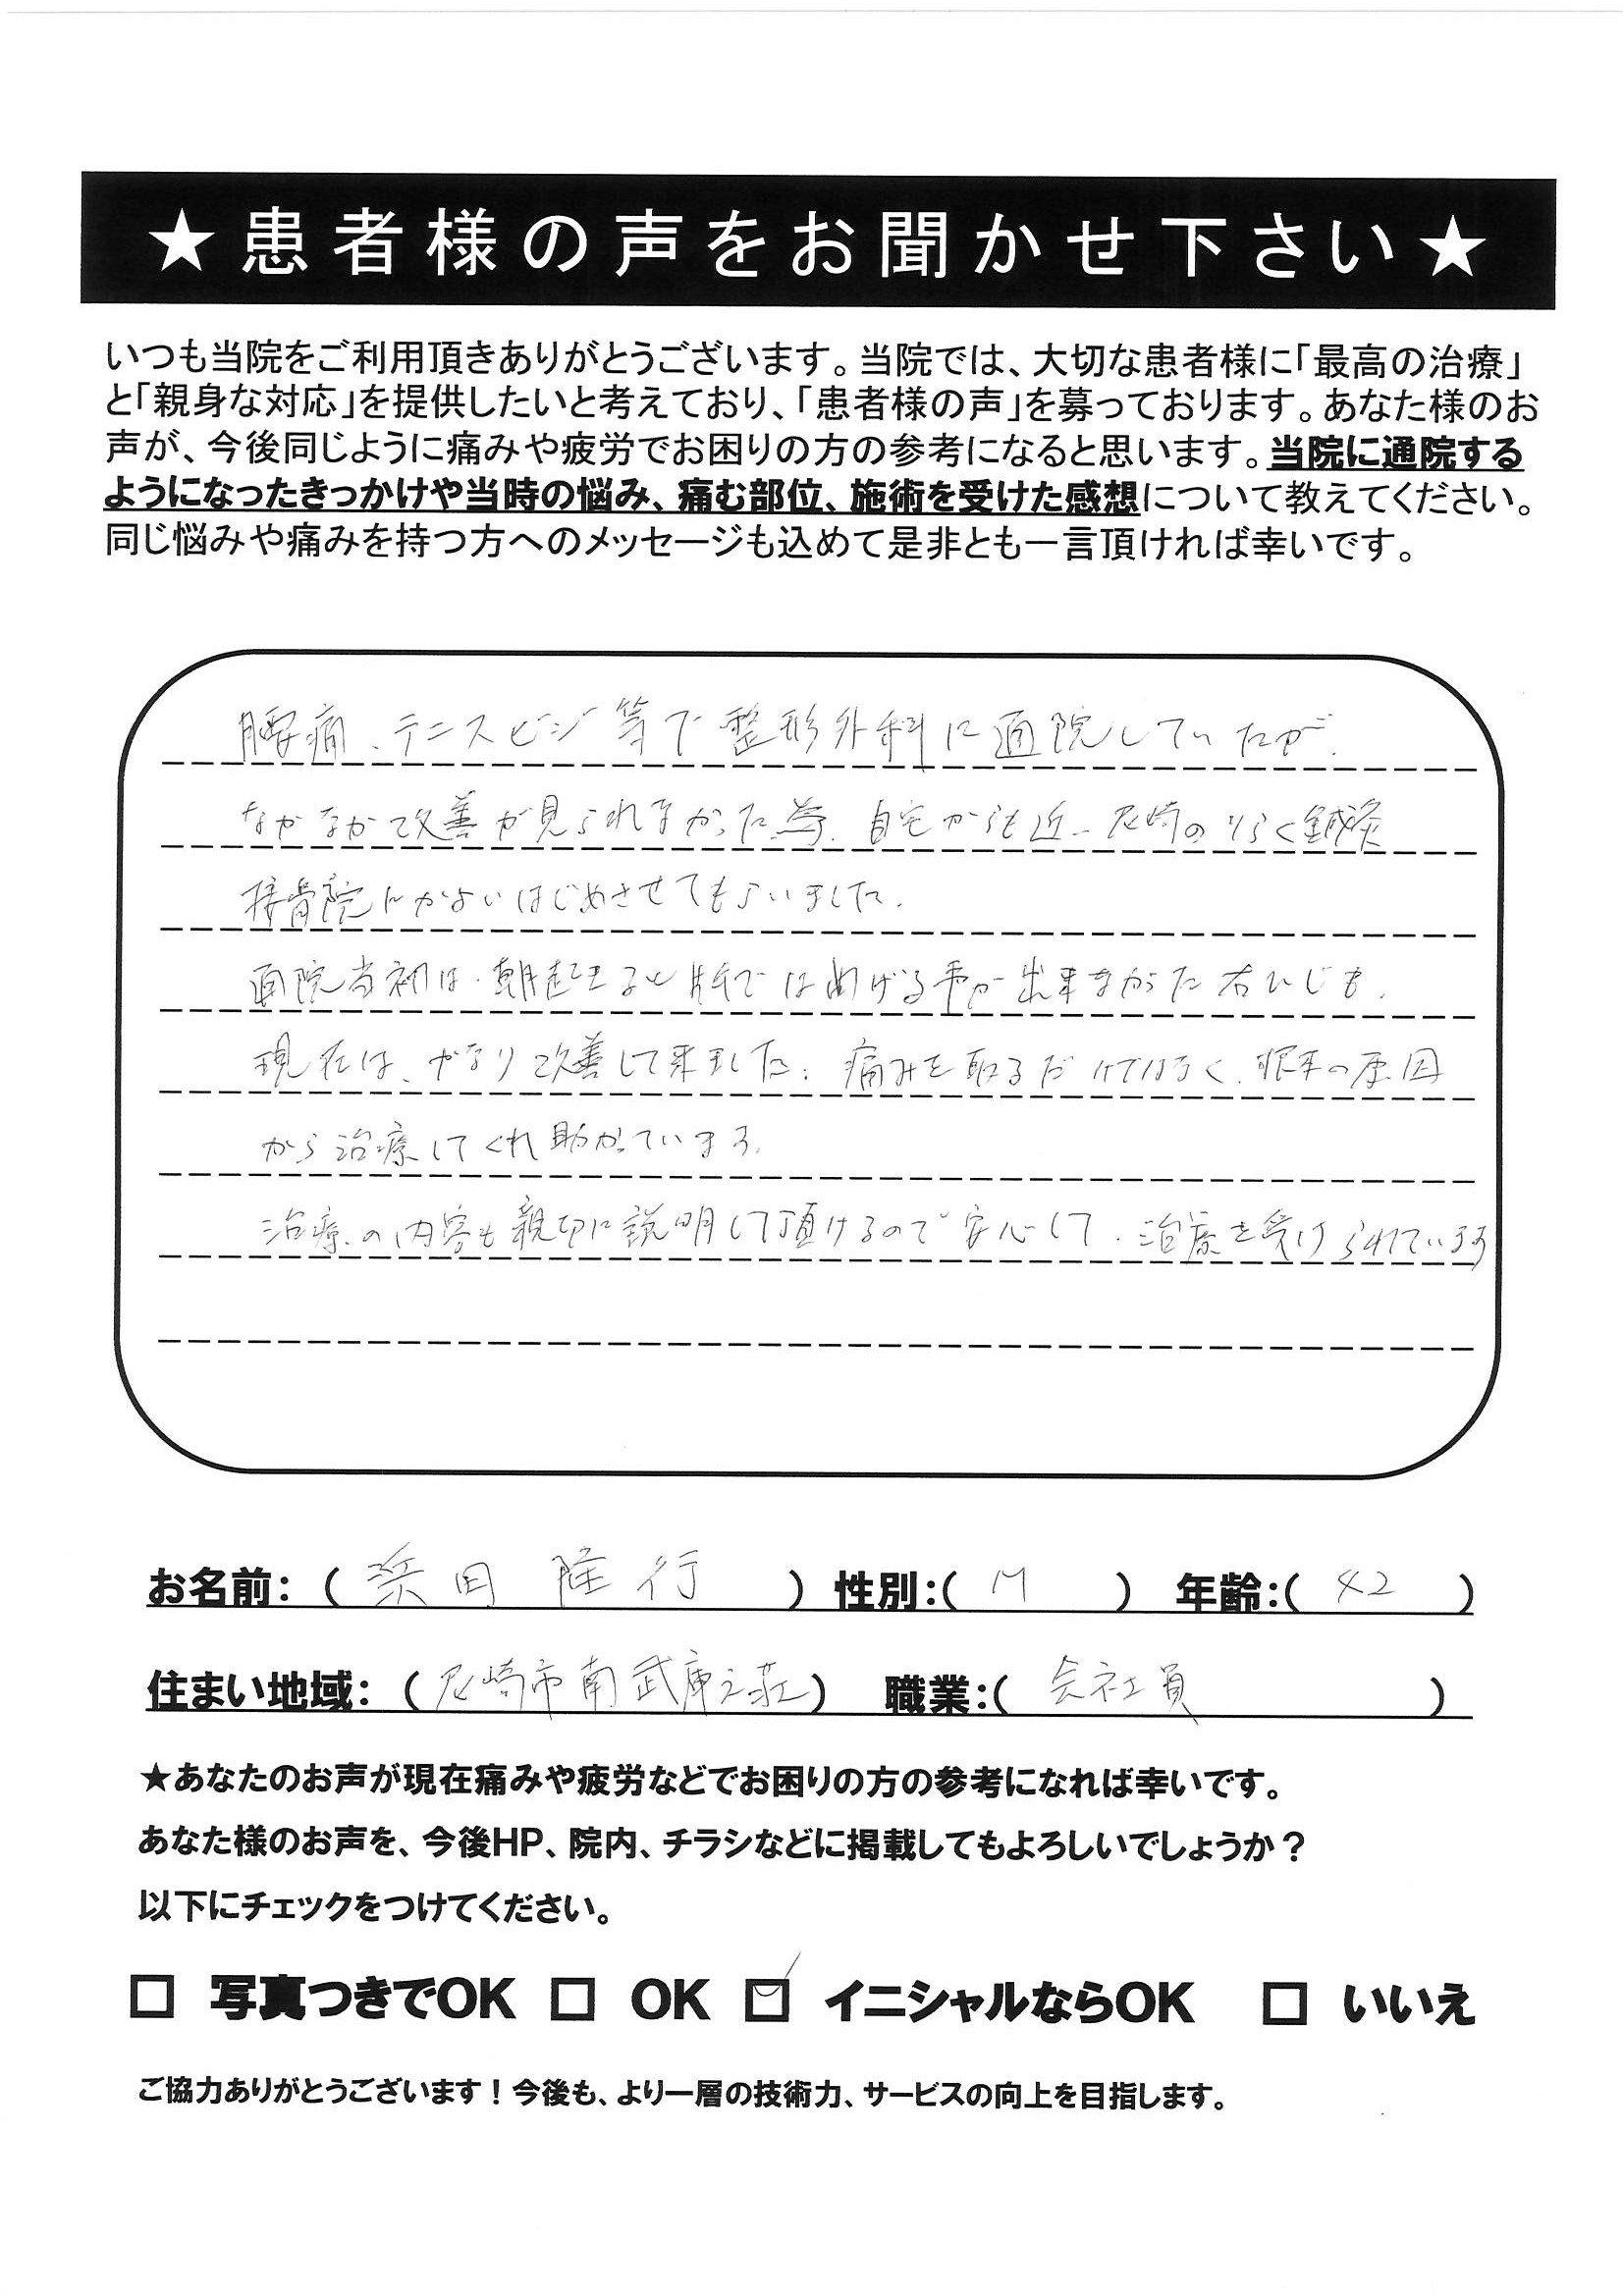 ★患者様の声をお聞かせ下さい★
いつも当院をご利用頂きありがとうございます。当院では、大切な患者様に「最高の治療」
と「親身な対応」を提供したいと考えており、「患者様の声」を募っております。あなた様のお
声が、今後同じように痛みや疲労でお困りの方の参考になると思います。当院に通院する
ようになったきっかけや当時の悩み、痛む部位、施術を受けた感想について教えてください。
同じ悩みや痛みを持つ方へのメッセージも込めて是非とも一言頂ければ幸いです。
腰痛、テニスヒジ等で整形外科に通院していたが、
なかなか改善が見られなかった為、自宅からも近い尼崎のりらく鍼灸
接骨院にかよいはじめさせてもらいました。
通院当初は、朝起きると片手では曲げる事が出来なかった右ひじも、
現在は、かなり改善して来ました。痛みを取るだけではなく、根本の原因
から治療してくれ助かっています。
治療の内容も親切に説明して頂けるので安心して、治療を受けられています
お名前：（浜田 隆行）性別：（M）年齢：（42）
住まい地域：（尼崎市南武庫之荘）職業：（会社員）
★あなたのお声が現在痛みや疲労などでお困りの方の参考になれば幸いです。
あなた様のお声を、今後HP、院内、チラシなどに掲載してもよろしいでしょうか？
以下にチェックをつけてください。
□ 写真つきでOK □ OK ☑ イニシャルならOK □ いいえ
ご協力ありがとうございます！今後も、より一層の技術力、サービスの向上を目指します。